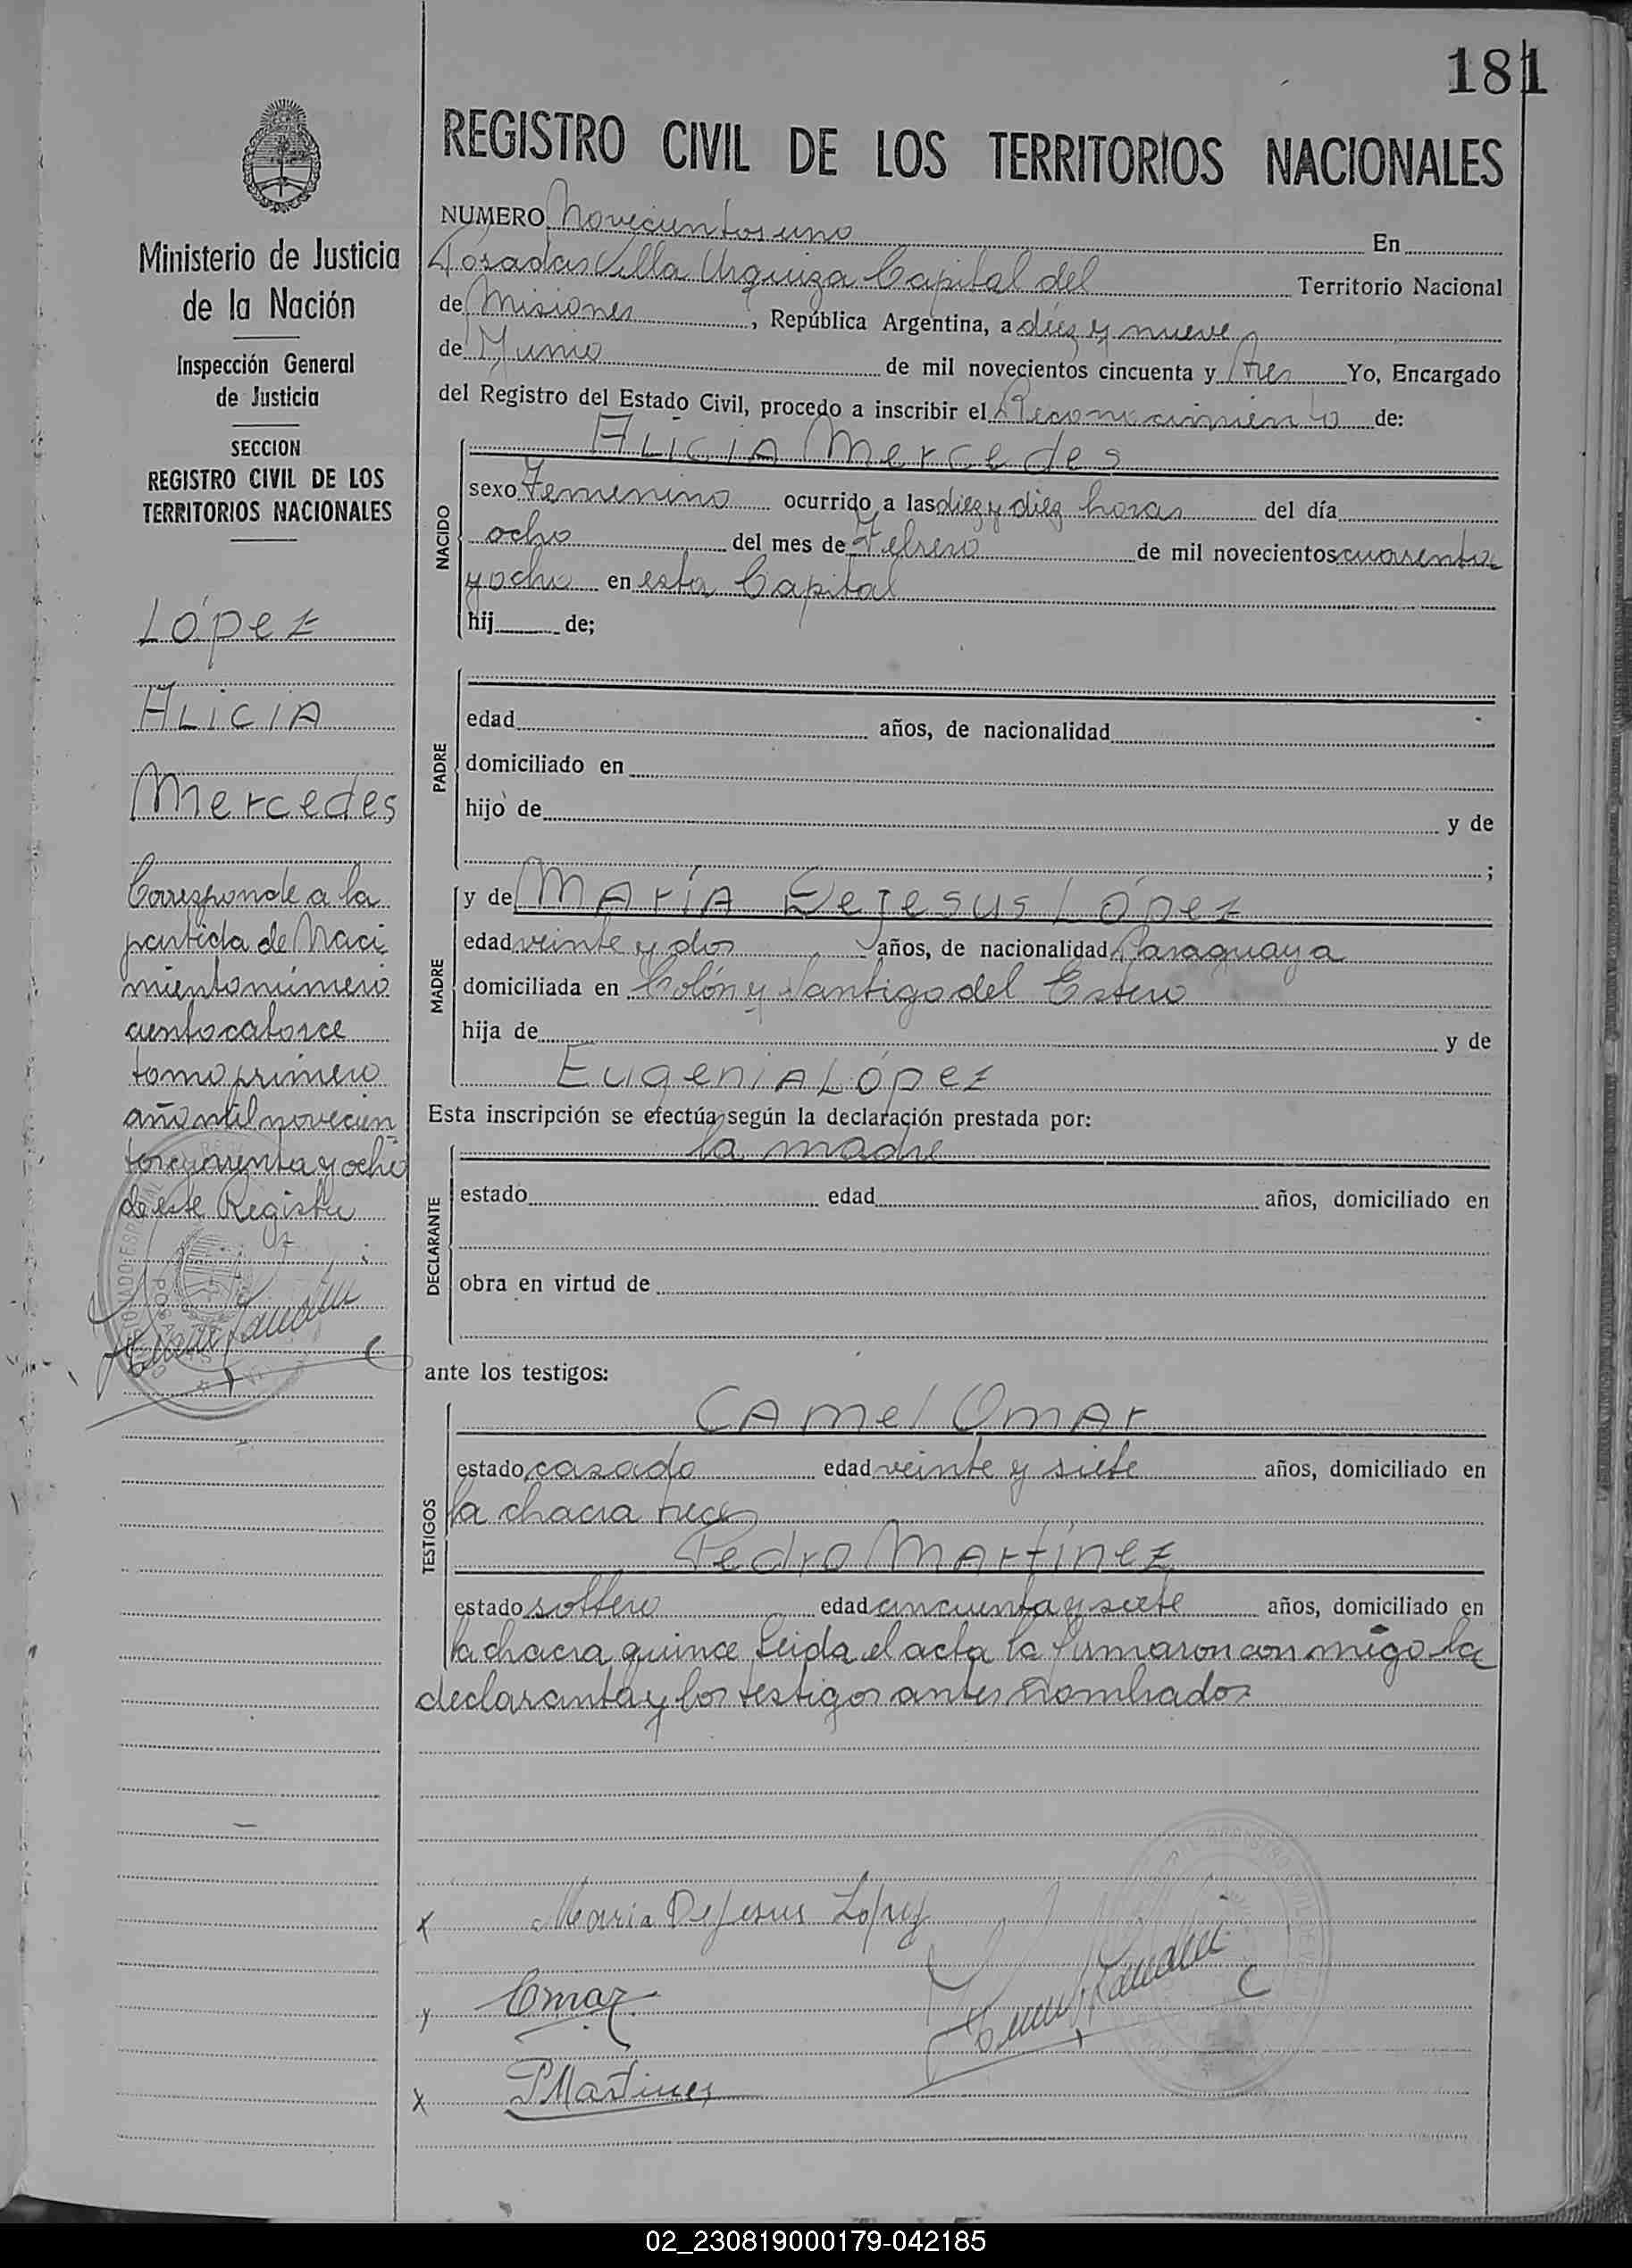 181
REGISTRO CIVIL DE LOS TERRITORIOS NACIONALES
Ministerio de Justicia
de la Nación
Inspección General
de Justicia
SECCION
REGISTRO CIVIL DE LOS
TERRITORIOS NACIONALES
López
ALICIA
Mercedes
Corresponde a la
partida de Naci
miento número
ciento catorce
tomo primero
año mil novecien
tos cuarenta y ocho
de este Registro
NUMERO Novecientos uno En
Posadas Villa Urquiza Capital del Territorio Nacional
de Misiones, República Argentina, a diez y nueve
de Junio de mil novecientos cincuenta y tres Yo, Encargado
del Registro del Estado Civil, procedo a inscribir el Reconocimiento de:
ALICIA Mercedes
NACIDO
sexo Femenino ocurrido a las diez y diez horas del día
ocho del mes de Febrero de mil novecientos cuarenta
y ocho en esta Capital
hij de;
PADRE
edad años, de nacionalidad
domiciliado en
hijo de y de
;
MADRE
y de MARÍA DeJesus López
edad veinte y dos años, de nacionalidad Paraguaya
domiciliada en Colón y Santigo del Estero
hija de y de
Eugenia López
Esta inscripción se efectúa según la declaración prestada por:
la madre
DECLARANTE
estado edad años, domiciliado en
obra en virtud de
ante los testigos:
CAmel OmAr
TESTIGOS
estado casado edad veinte y siete años, domiciliado en
la chacra trece
Pedro MArtínez
estado soltero edad cincuenta y siete años, domiciliado en
la chacra quince Leida el acta la firmaron con migo la
declaranta y los testigos antes nombrados
x Maria DeJesus Lopez
y Omar
x PMartines
02_230819000179-042185